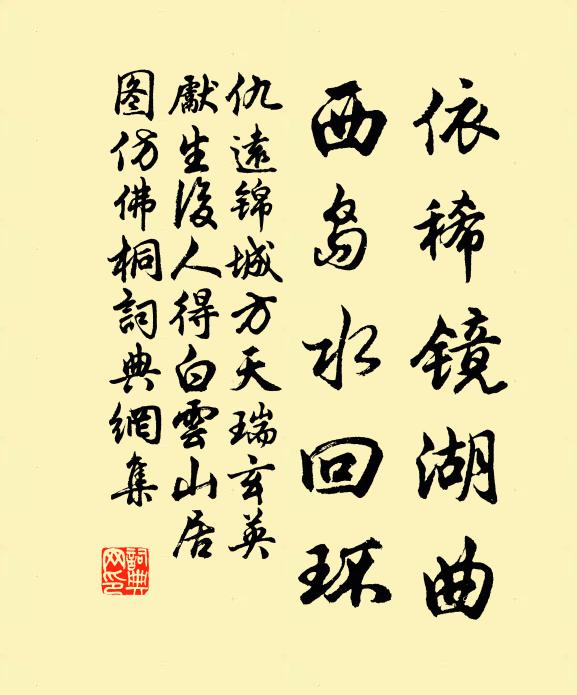 依稀镜湖曲
西岛水回环
仇遠锦城方天瑞玄英
獻生後人得白雲山居
图仿佛桐詞典網集
詞典
网印